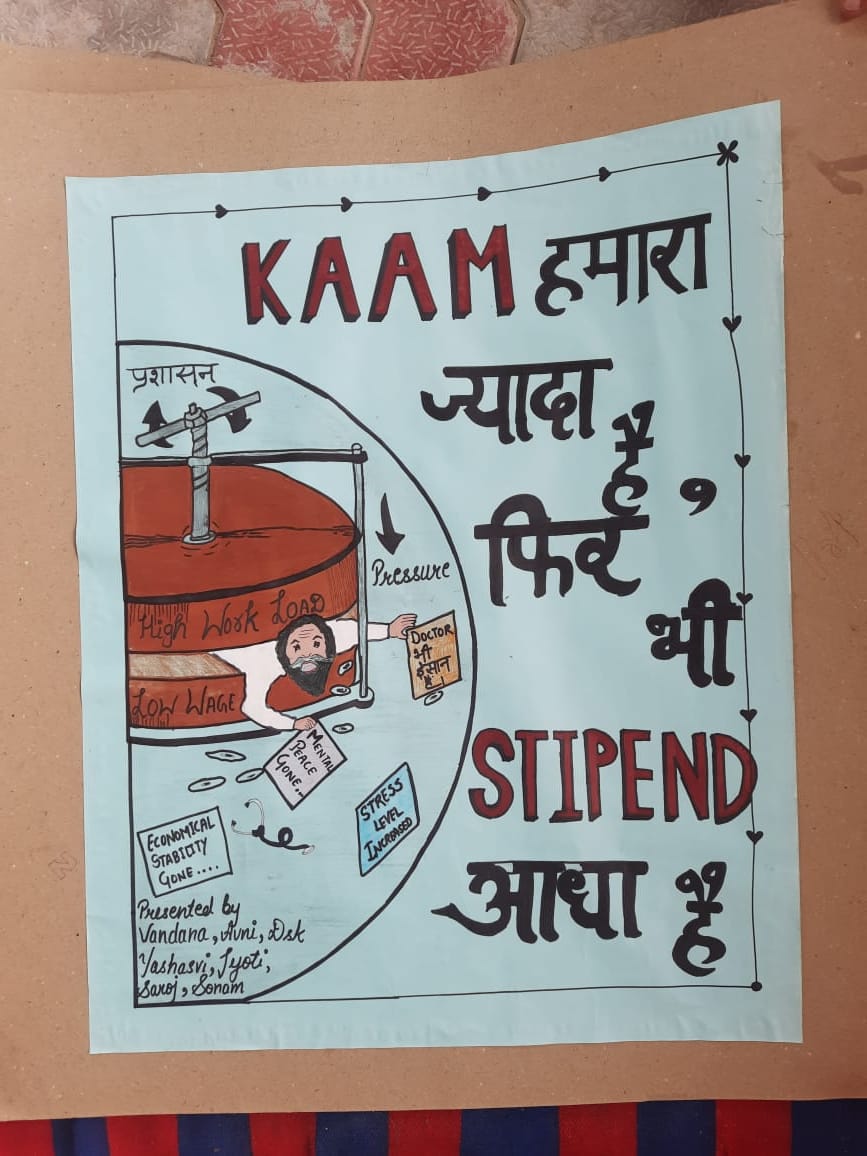 KAAM हमारा
ज्यादा
है,
फिर
भी
STIPEND
आधा है
प्रशासन
Pressure
High Work LOAD
LOW WAGE
DOCTOR
भी
इंसान
है।
MENTAL
PEACE
GONE...
STRESS
LEVEL
INCREASED
ECONOMICAL
STABILITY
GONE....
Presented by
Vandana, Avni, Dsk
Yashasvi, Jyoti,
Saroj, Sonam